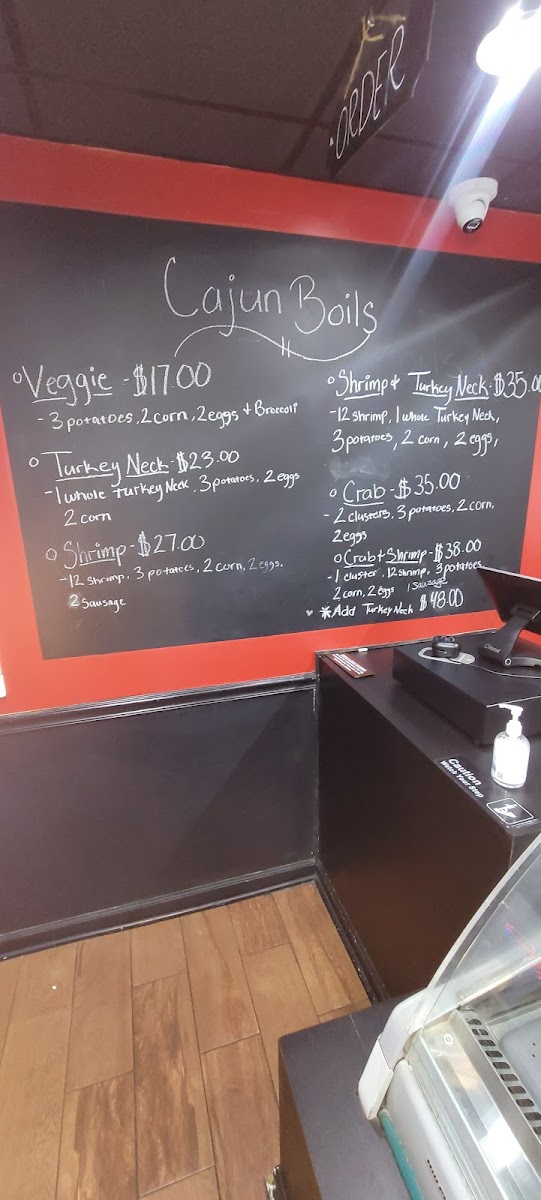 •ORDER
Cajun Boils
Veggie - $17.00
- 3 potatoes, 2 corn, 2 eggs + Broccoli
Turkey Neck - $23.00
- 1 whole Turkey Neck, 3 potatoes, 2 eggs
2 corn
Shrimp - $27.00
- 12 shrimp, 3 potatoes, 2 corn, 2 eggs.
2 Sausage
Shrimp + Turkey Neck - $35.00
- 12 shrimp, 1 whole Turkey Neck,
3 potatoes, 2 corn, 2 eggs,
Crab - $35.00
- 2 clusters, 3 potatoes, 2 corn,
2 eggs
Crab + Shrimp - $38.00
- 1 cluster, 12 shrimp, 3 potatoes
2 corn, 2 eggs 1 Sausage
* Add Turkey Neck $48.00
Caution
Watch Your Step